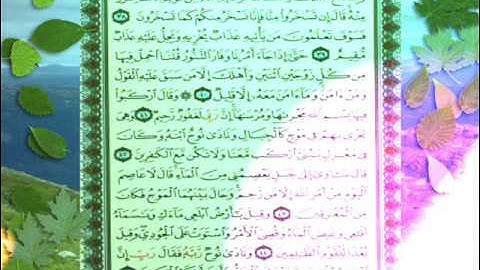 مِنْهُ قَالَ إِن تَسْخَرُوا۟ مِنَّا فَإِنَّا نَسْخَرُ مِنكُمْ كَمَا تَسْخَرُونَ ٣٨
فَسَوْفَ تَعْلَمُونَ مَن يَأْتِيهِ عَذَابٌ يُخْزِيهِ وَيَحِلُّ عَلَيْهِ عَذَابٌ
مُّقِيمٌ ٣٩ حَتَّىٰٓ إِذَا جَآءَ أَمْرُنَا وَفَارَ ٱلتَّنُّورُ قُلْنَا ٱحْمِلْ فِيهَا
مِن كُلٍّ زَوْجَيْنِ ٱثْنَيْنِ وَأَهْلَكَ إِلَّا مَن سَبَقَ عَلَيْهِ ٱلْقَوْلُ
وَمَنْ ءَامَنَ وَمَآ ءَامَنَ مَعَهُۥٓ إِلَّا قَلِيلٌ ٤٠ ۞ وَقَالَ ٱرْكَبُوا۟
فِيهَا بِسْمِ ٱللَّهِ مَجْر۪ىٰهَا وَمُرْسَىٰهَآ إِنَّ رَبِّى لَغَفُورٌ رَّحِيمٌ ٤١ وَهِىَ
تَجْرِى بِهِمْ فِى مَوْجٍ كَٱلْجِبَالِ وَنَادَىٰ نُوحٌ ٱبْنَهُۥ وَكَانَ
فِى مَعْزِلٍ يَـٰبُنَىَّ ٱرْكَب مَّعَنَا وَلَا تَكُن مَّعَ ٱلْكَـٰفِرِينَ ٤٢
قَالَ سَـَٔاوِىٓ إِلَىٰ جَبَلٍ يَعْصِمُنِى مِنَ ٱلْمَآءِ قَالَ لَا عَاصِمَ
ٱلْيَوْمَ مِنْ أَمْرِ ٱللَّهِ إِلَّا مَن رَّحِمَ وَحَالَ بَيْنَهُمَا ٱلْمَوْجُ فَكَانَ
مِنَ ٱلْمُغْرَقِينَ ٤٣ وَقِيلَ يَـٰٓأَرْضُ ٱبْلَعِى مَآءَكِ وَيَـٰسَمَآءُ
أَقْلِعِى وَغِيضَ ٱلْمَآءُ وَقُضِىَ ٱلْأَمْرُ وَٱسْتَوَتْ عَلَى ٱلْجُودِىِّ وَقِيلَ
بُعْدًا لِّلْقَوْمِ ٱلظَّـٰلِمِينَ ٤٤ وَنَادَىٰ نُوحٌ رَّبَّهُۥ فَقَالَ رَبِّ إِنَّ